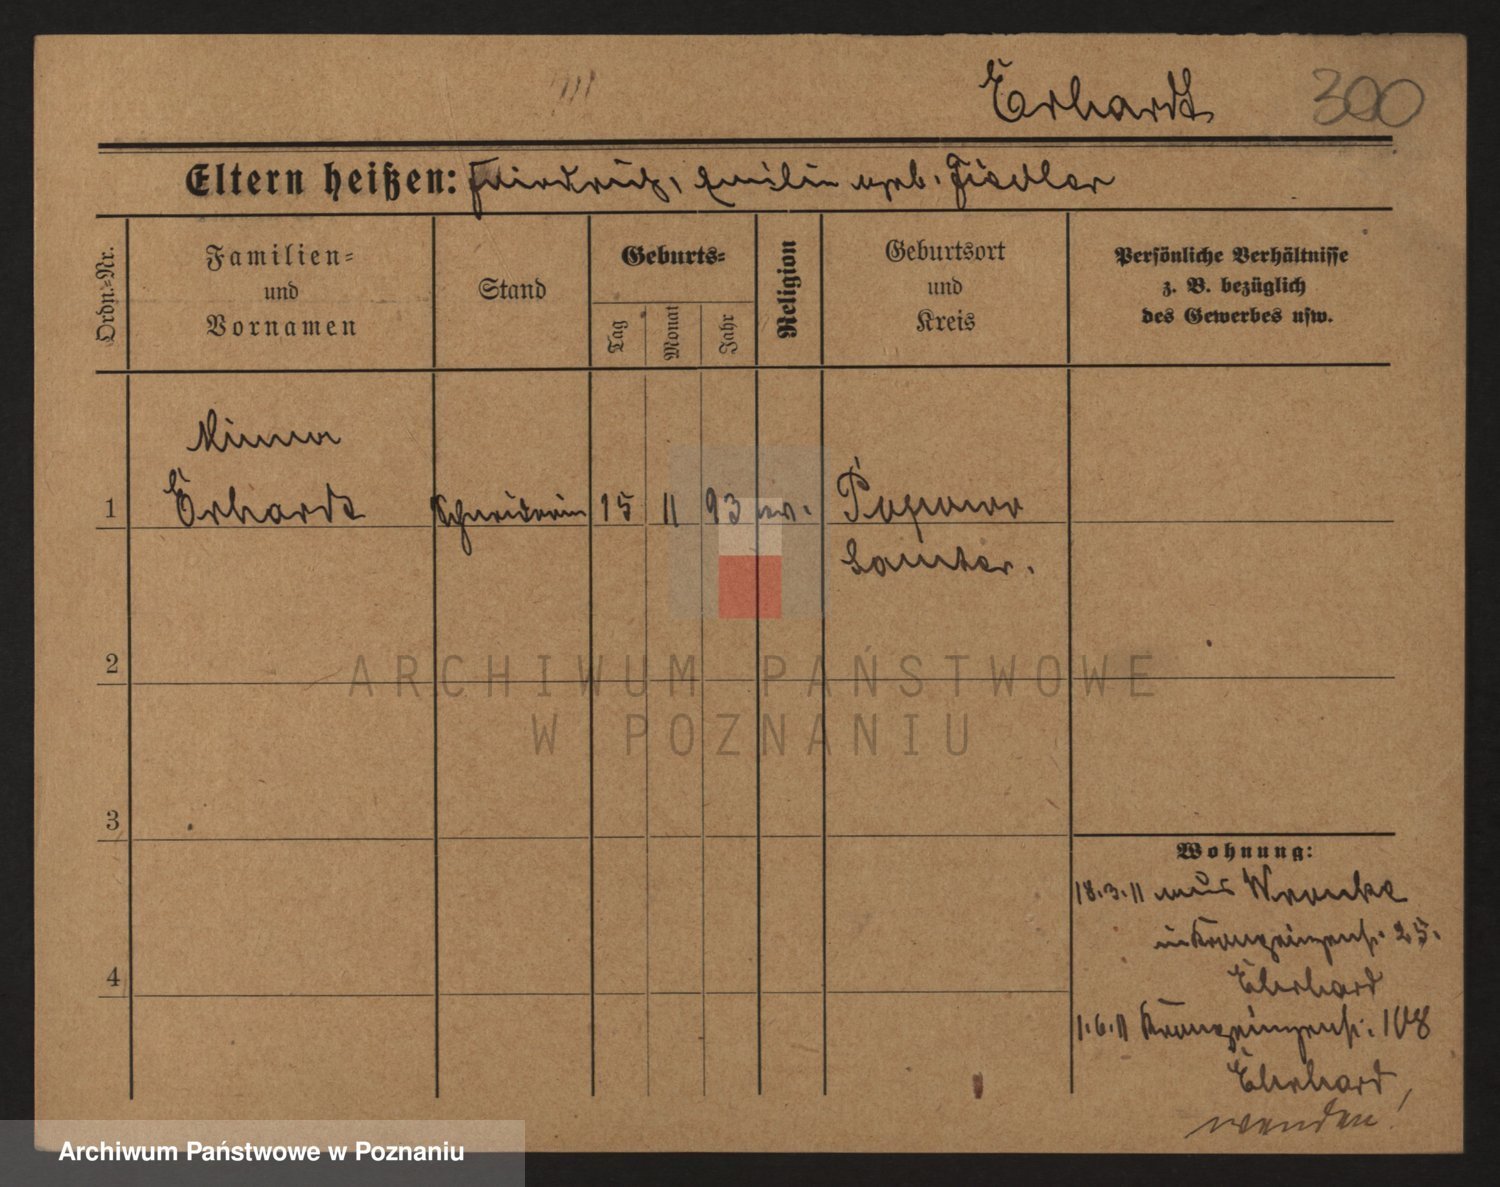 Erhardt 300
Eltern heißen: Friedrich, Emilie geb. Fiedler
Ordn.=Nr.
Familien=
und
Vornamen
Stand
Geburts=
Tag
Monat
Jahr
Religion
Geburtsort
und
Kreis
Persönliche Verhältnisse
z. B. bezüglich
des Gewerbes usw.
Minna
1 Erhardt Schneiderin 15 11 93 ev. Popowo
Samter.
2
ARCHIWUM PAŃSTWOWE
W POZNANIU
3
Wohnung:
18.3.11 aus Wronke
Kronprinzenstr. 25.
Ehrhard
4
1.6.11 Kronprinzenstr. 108
Ehrhard
wenden!
Archiwum Państwowe w Poznaniu